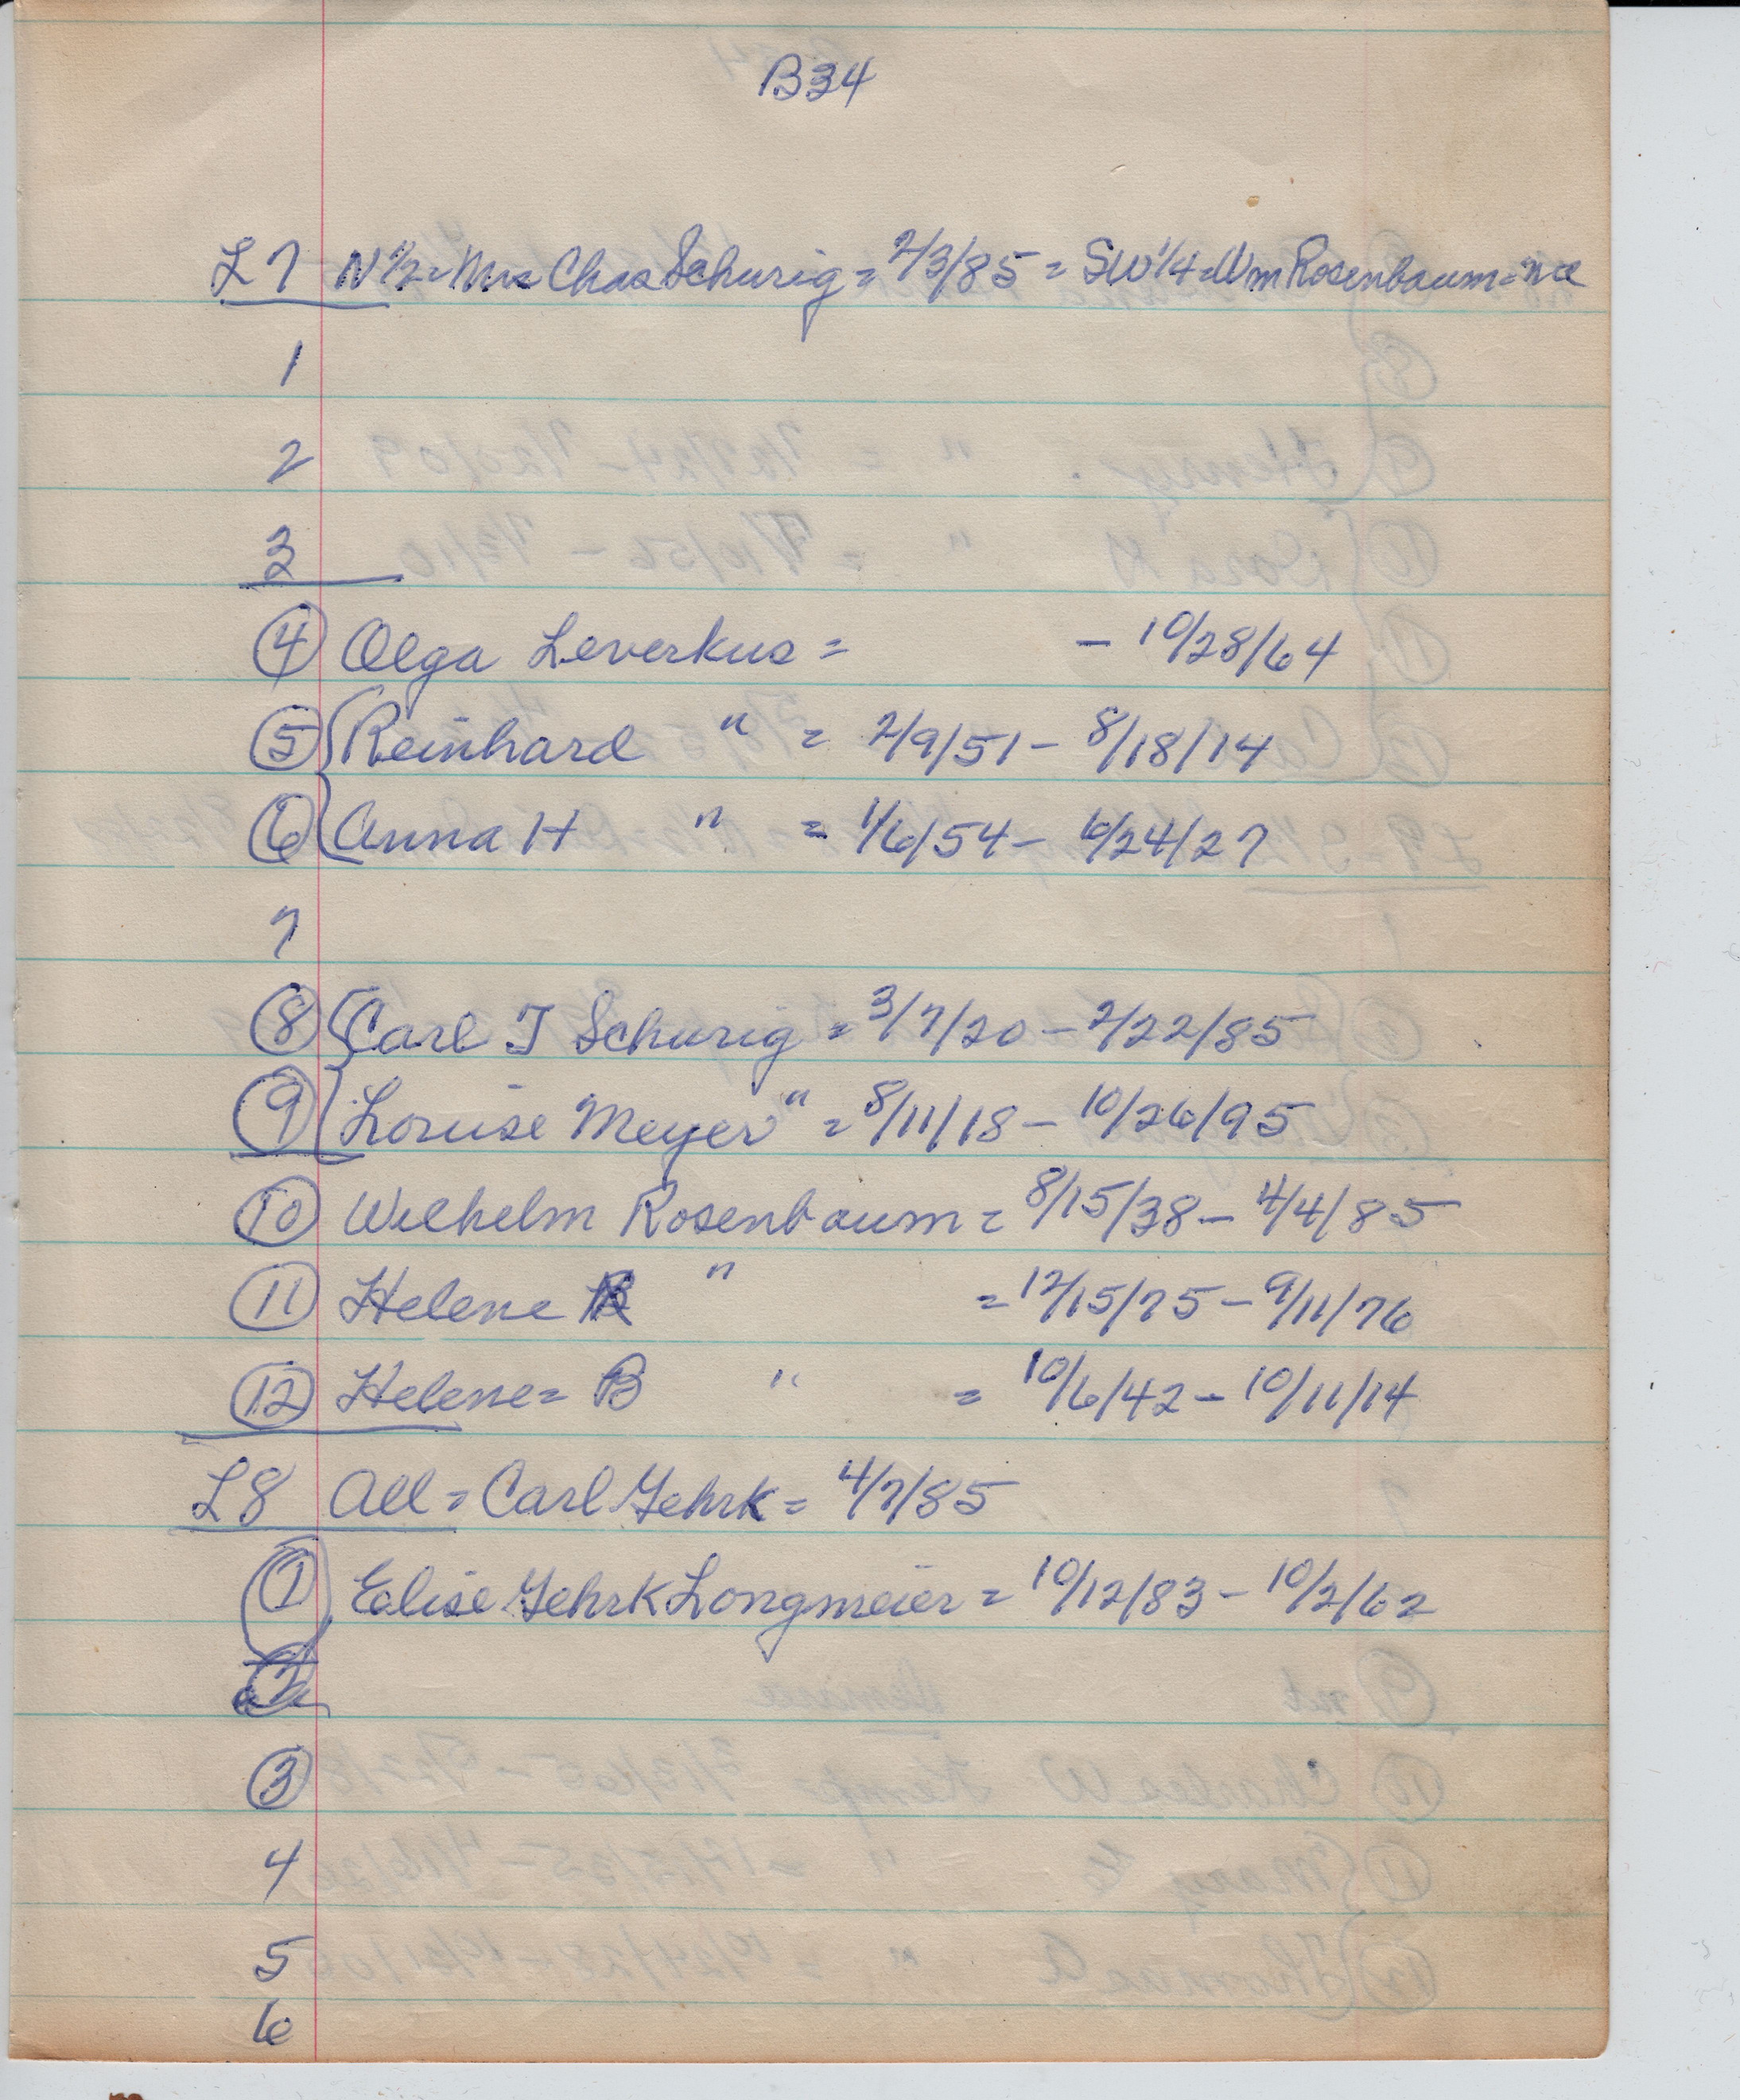 B34
L7 N 1/2 = Mrs Chas Schurig = 2/3/85 = SW 1/4 = Wm Rosenbaum = nd
1
2
3
④ Olga Leverkus = - 10/28/64
⑤ Reinhard " = 2/9/51 - 8/18/14
⑥ Anna H " = 1/6/54 - 6/24/27
7
⑧ Carl T Schurig = 3/7/20 - 2/22/85
⑨ Louise Meyer " = 8/11/18 - 10/26/95
⑩ Wilhelm Rosenbaum = 8/15/38 - 4/4/85
⑪ Helene " = 12/15/75 - 9/11/76
⑫ Helene = B " = 10/6/42 - 10/11/14
L8 All = Carl Gehrk = 4/7/85
① Elise Gehrk Longmeier = 10/12/83 - 10/2/62
②
③
4
5
6